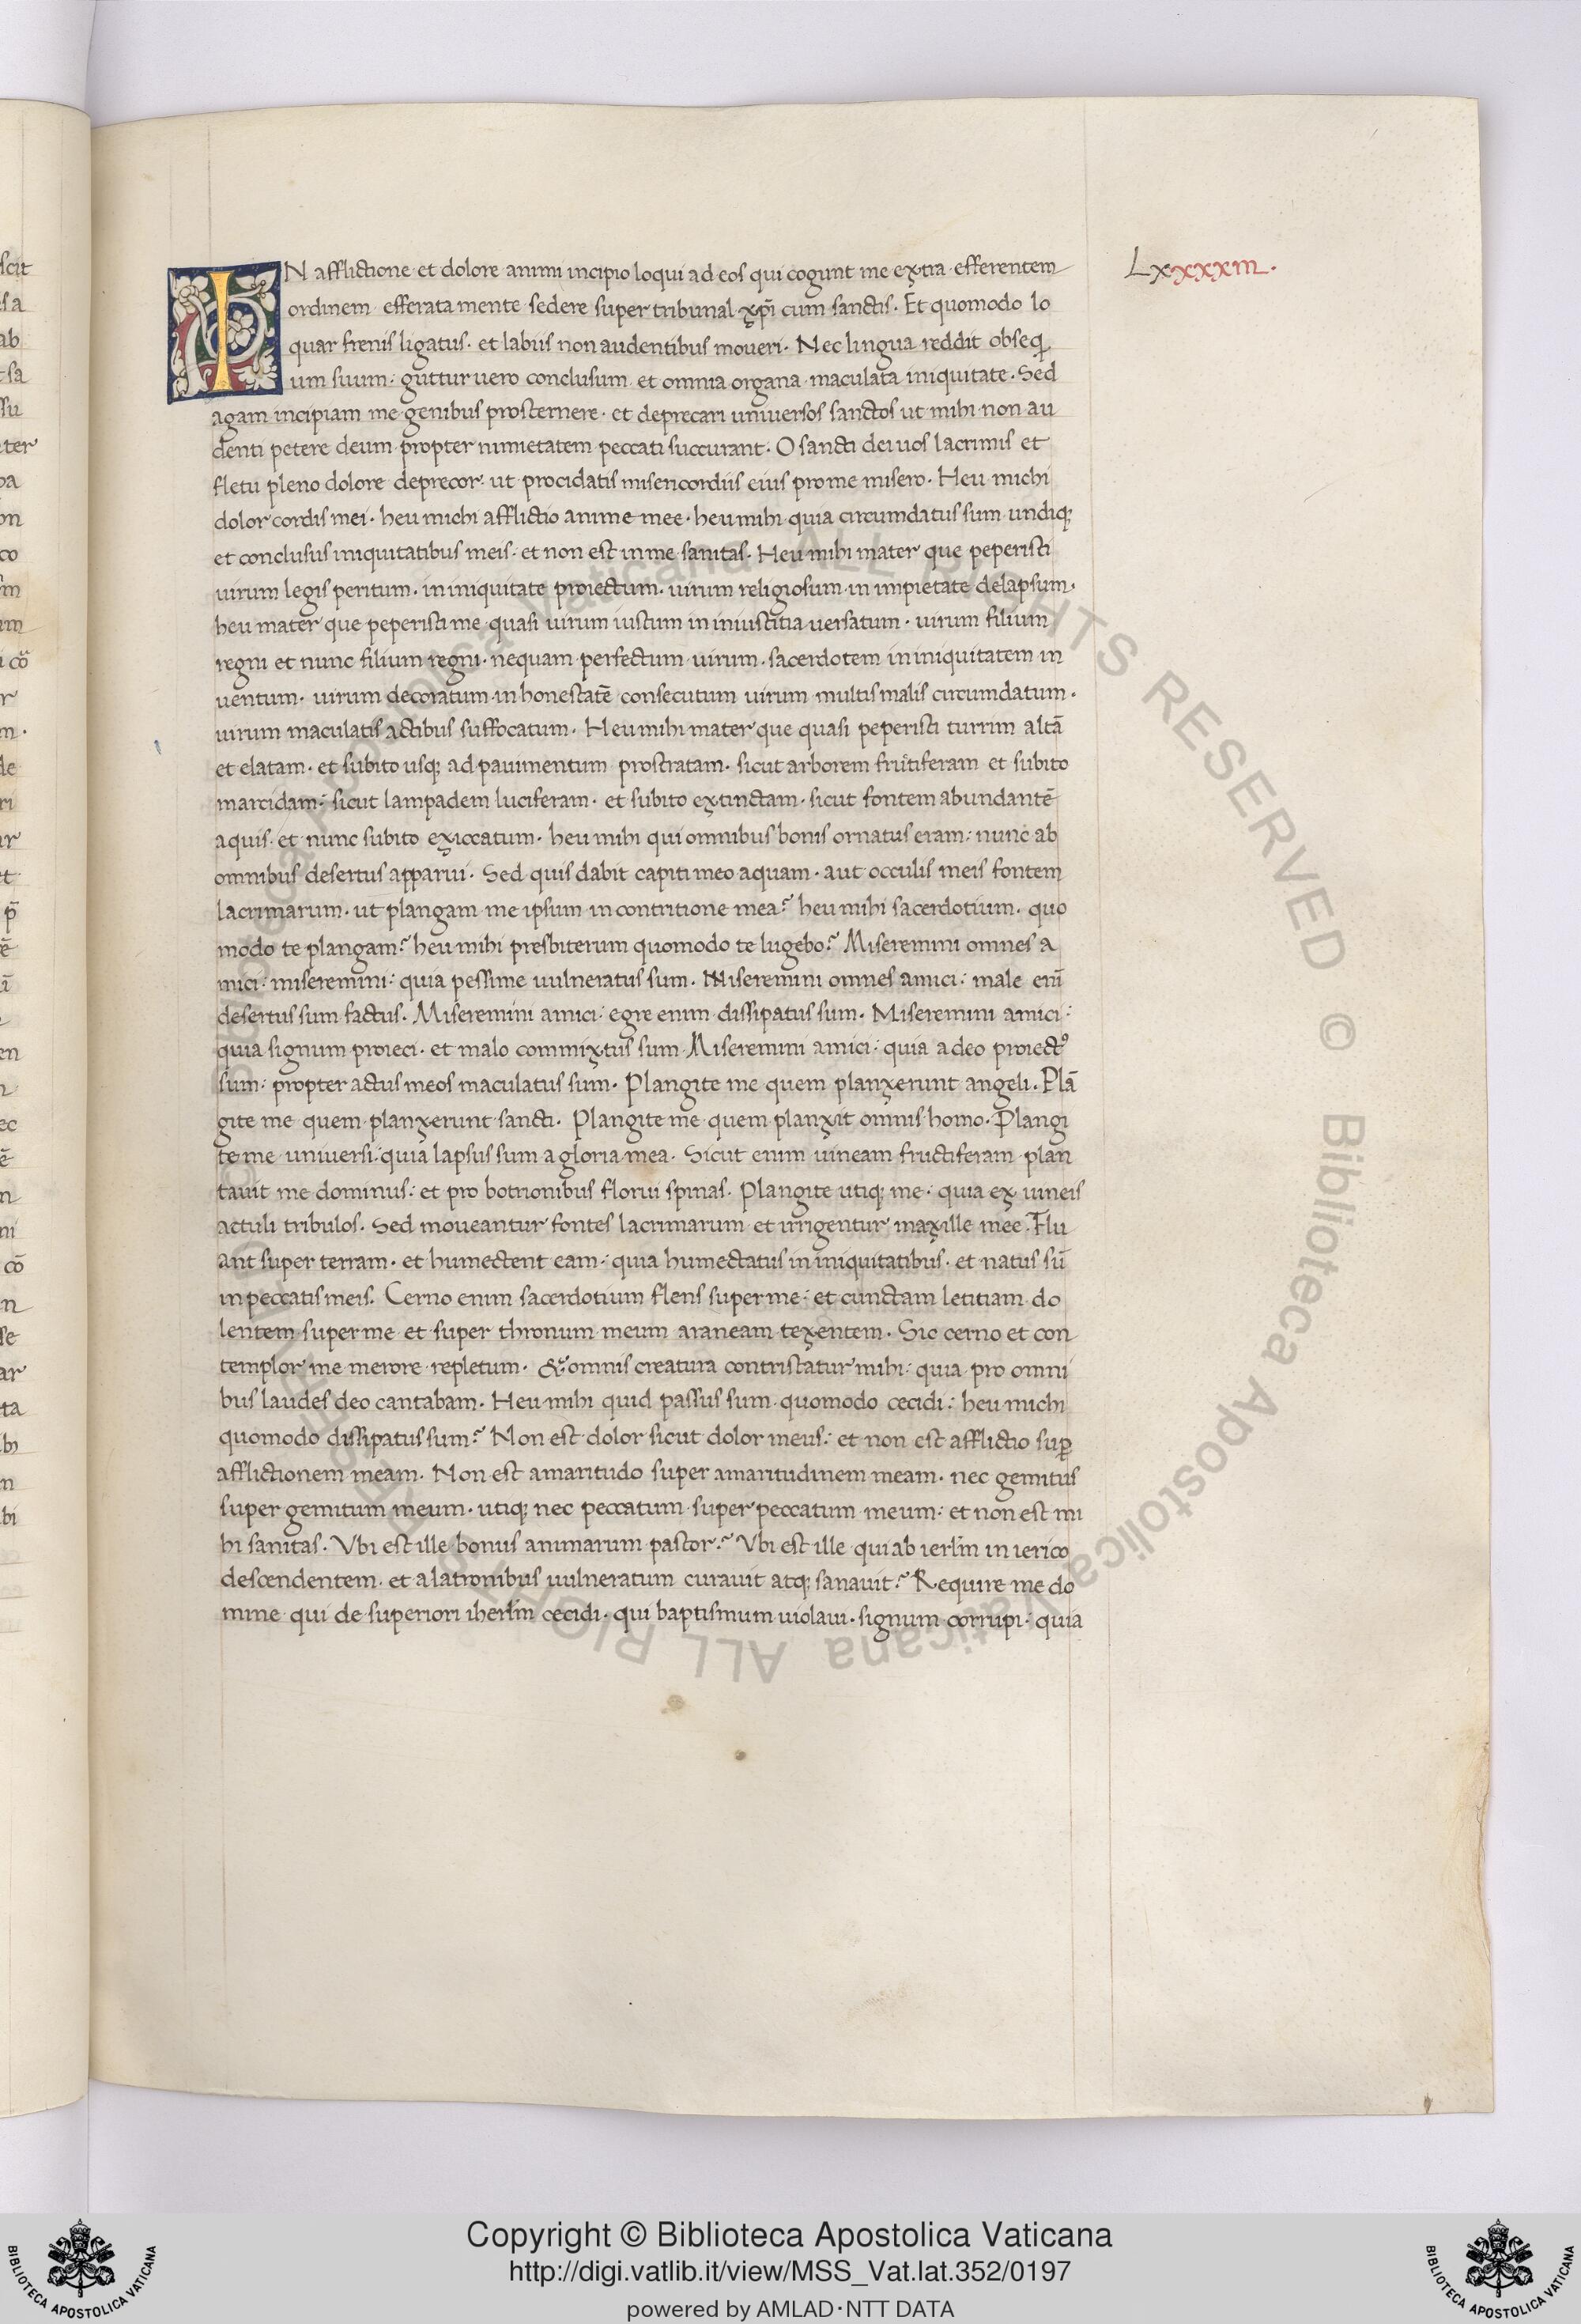 Lxxxxiii.
IN afflictione et dolore animi incipio loqui ad eos qui cogunt me extra efferentem
ordinem efferata mente sedere super tribunal xp̄i cum sanctis. Et quomodo lo
quar frenis ligatus. et labiis non audentibus moveri. Nec lingua reddit obseq̨
um suum: guttur uero conclusum et omnia organa maculata iniquitate. Sed
agam incipiam me genibus prosternere. et deprecari universos sanctos ut mihi non au
denti petere deum propter nimietatem peccati succurant. O sancti dei uos lacrimis et
fletu pleno dolore deprecor: ut procidatis misericordiis eius pro me misero. Heu michi
dolor cordis mei. heu michi afflictio anime mee. heu mihi quia circumdatus sum undiq;
et conclusus iniquitatibus meis. et non est in me sanitas. Heu mihi mater que peperisti
uirum legis peritum. in iniquitate proiectum. uirum religiosum in impietate delapsum.
heu mater que peperisti me quasi uirum iustum in iniustitia uersatum. uirum filium
regni et nunc filium regni. nequam perfectum uirum. sacerdotem in iniquitatem in
uentum. uirum decoratum in honestatē consecutum uirum multis malis circumdatum.
uirum maculatis actibus suffocatum. Heu mihi mater que quasi peperisti turrim altā
et elatam. et subito usq; ad pauimentum prostratam. sicut arborem fructiferam et subito
marcidam: sicut lampadem luciferam. et subito extinctam. sicut fontem abundantē
aquis. et nunc subito exiccatum. heu mihi qui omnibus bonis ornatus eram: nunc ab
omnibus desertus apparui. Sed quis dabit capiti meo aquam. aut occulis meis fontem
lacrimarum. ut plangam me ipsum in contritione mea? heu mihi sacerdotium. quo
modo te plangam? heu mihi presbiterum quomodo te lugebo? Miseremini omnes a
mici: miseremini: quia pessime uulneratus sum. Miseremini omnes amici: male eni̅
desertus sum factus. Miseremini amici: egre enim dissipatus sum. Miseremini amici:
quia signum proieci. et malo commixtus sum. Miseremini amici: quia a deo proiectꝰ
sum: propter actus meos maculatus sum. Plangite me quem planxerunt angeli. Plā
gite me quem planxerunt sancti. Plangite me quem planxit omnis homo. Plangi
te me universi: quia lapsus sum a gloria mea. Sicut enim uineam fructiferam plan
tauit me dominus: et pro botrionibus florui spinas. Plangite utiq; me: quia ex uineis
actuli tribulos. Sed moueantur fontes lacrimarum et irrigentur maxille mee. Flu
ant super terram. et humectent eam: quia humectatus in iniquitatibus. et natus sū
in peccatis meis. Cerno enim sacerdotium flens super me: et cunctam letitiam do
lentem super me et super thronum meum araneam texentem. Sic cerno et con
templor me merore repletum. & omnis creatura contristatur mihi: quia pro omni
bus laudes deo cantabam. Heu mihi quid passus sum quomodo cecidi: heu michi
quomodo dissipatus sum? Non est dolor sicut dolor meus: et non est afflictio suꝑ
afflictionem meam. Non est amaritudo super amaritudinem meam. nec gemitus
super gemitum meum. utiq; nec peccatum super peccatum meum: et non est mi
hi sanitas. Vbi est ille bonus animarum pastor? Vbi est ille qui ab ierl̅m in ierico
descendentem. et a latronibus uulneratum curauit atq; sanauit? Require me do
mine qui de superiori iherl̅m cecidi. qui baptismum uiolaui. signum corrupi: quia
© Biblioteca Apostolica Vaticana ALL RIGHTS RESERVED
Copyright © Biblioteca Apostolica Vaticana
http://digi.vatlib.it/view/MSS_Vat.lat.352/0197
powered by AMLAD·NTT DATA
BIBLIOTECA APOSTOLICA VATICANA
BIBLIOTECA APOSTOLICA VATICANA